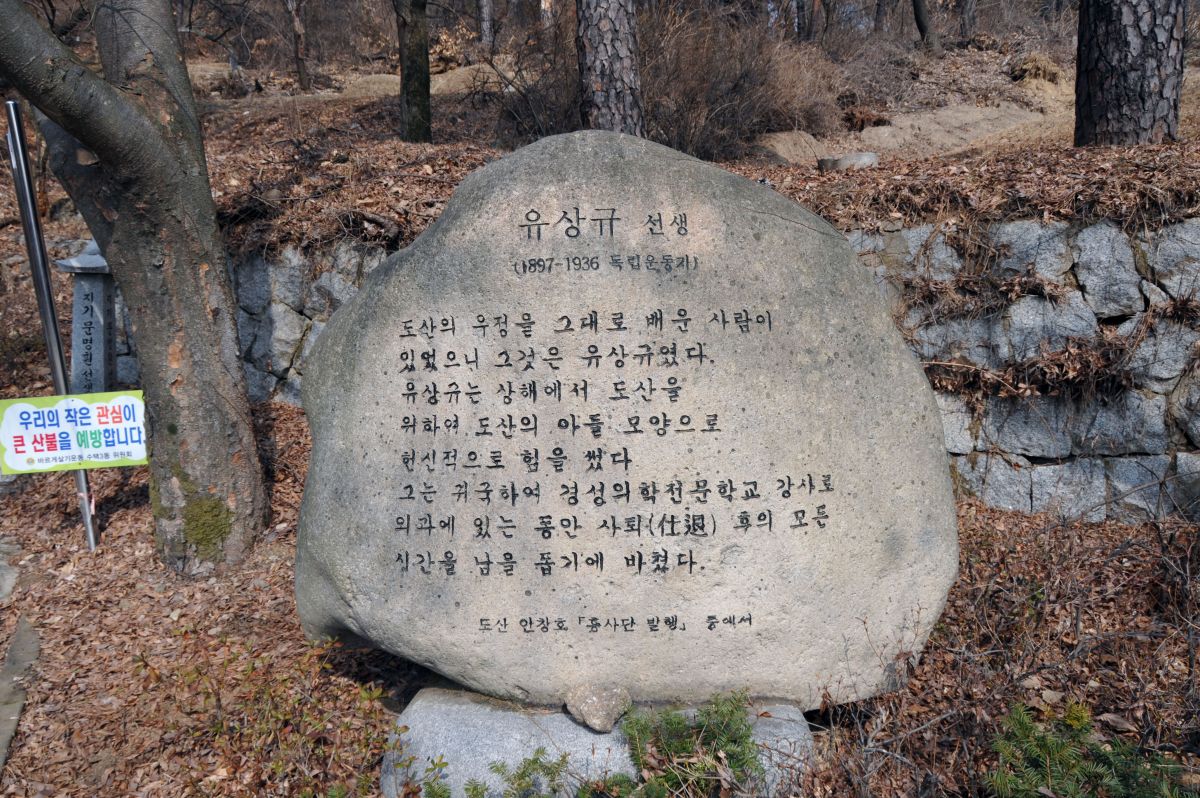 유상규 선생
(1897-1936 독립운동가)
도산의 우정을 그대로 배운 사람이
있었으니 그것은 유상규였다.
유상규는 상해에서 도산을
위하여 도산의 아들 모양으로
헌신적으로 힘을 썼다
그는 귀국하여 경성의학전문학교 강사로
외과에 있는 동안 사퇴(仕退) 후의 모든
시간을 남을 돕기에 바쳤다.
도산 안창호 「흥사단 발행」 중에서
지기 문명훤 선생
우리의 작은 관심이
큰 산불을 예방합니다
바르게살기운동 수택3동 위원회